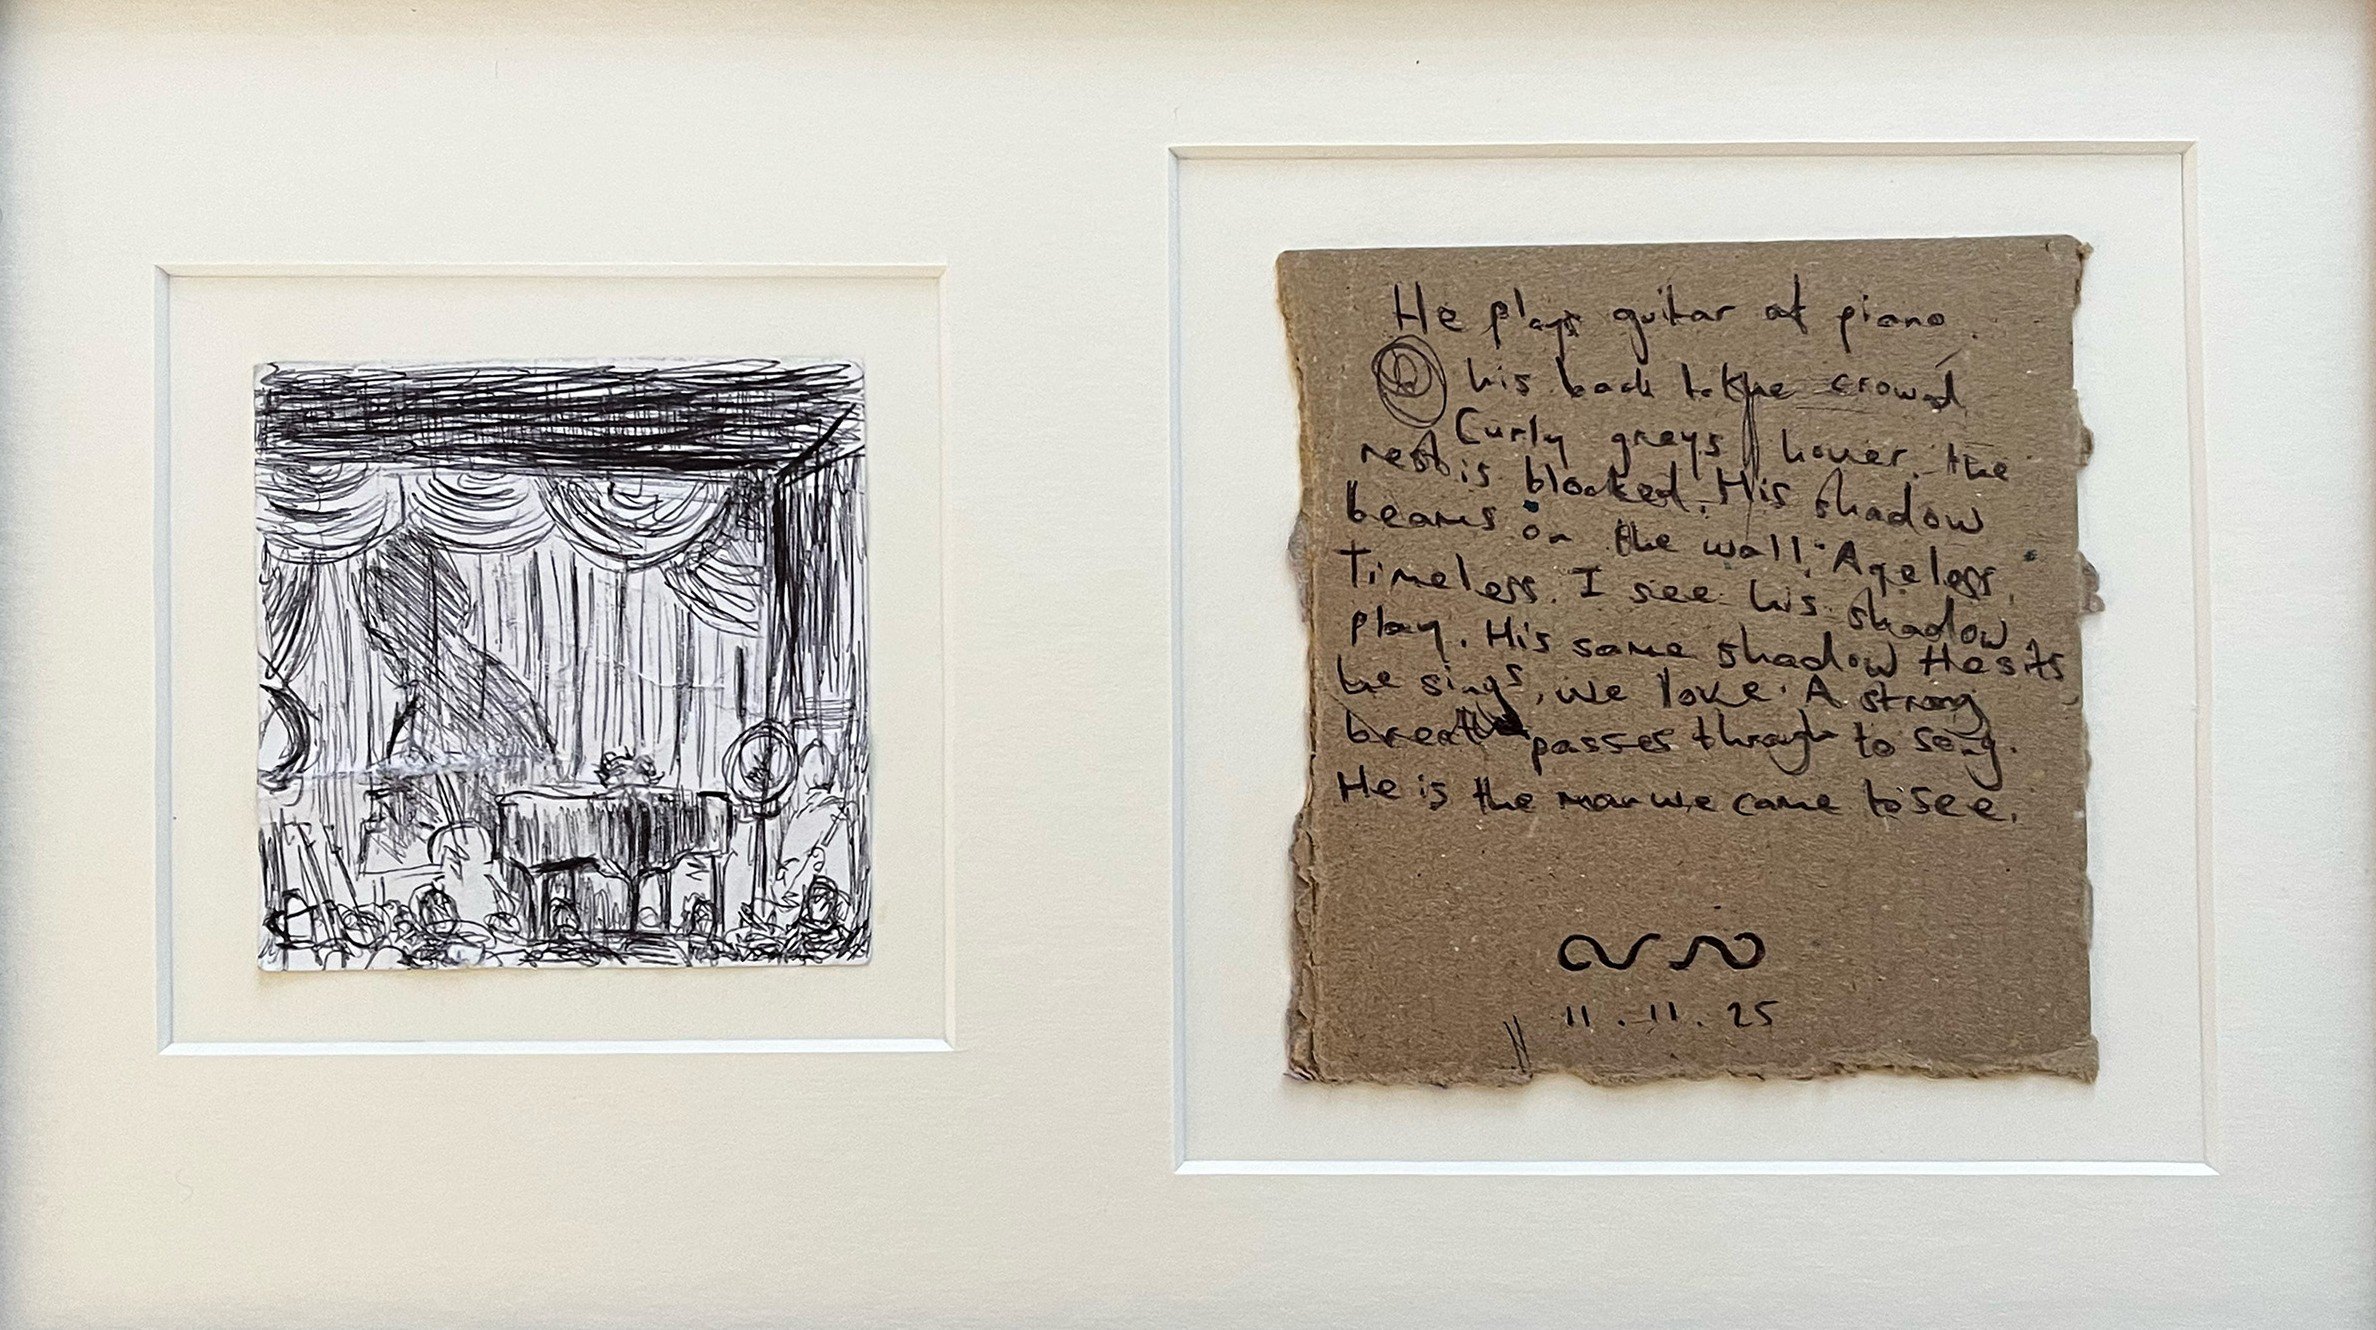 He plays guitar at piano.
his back to the crowd
Curly greys hover. the
rest is blocked. His shadow
beams on the wall. Ageless,
Timeless. I see his shadow
play. His same shadow He sits
he sings, we love. A strong
breath passes through to song.
He is the man we came to see.
11.11.25